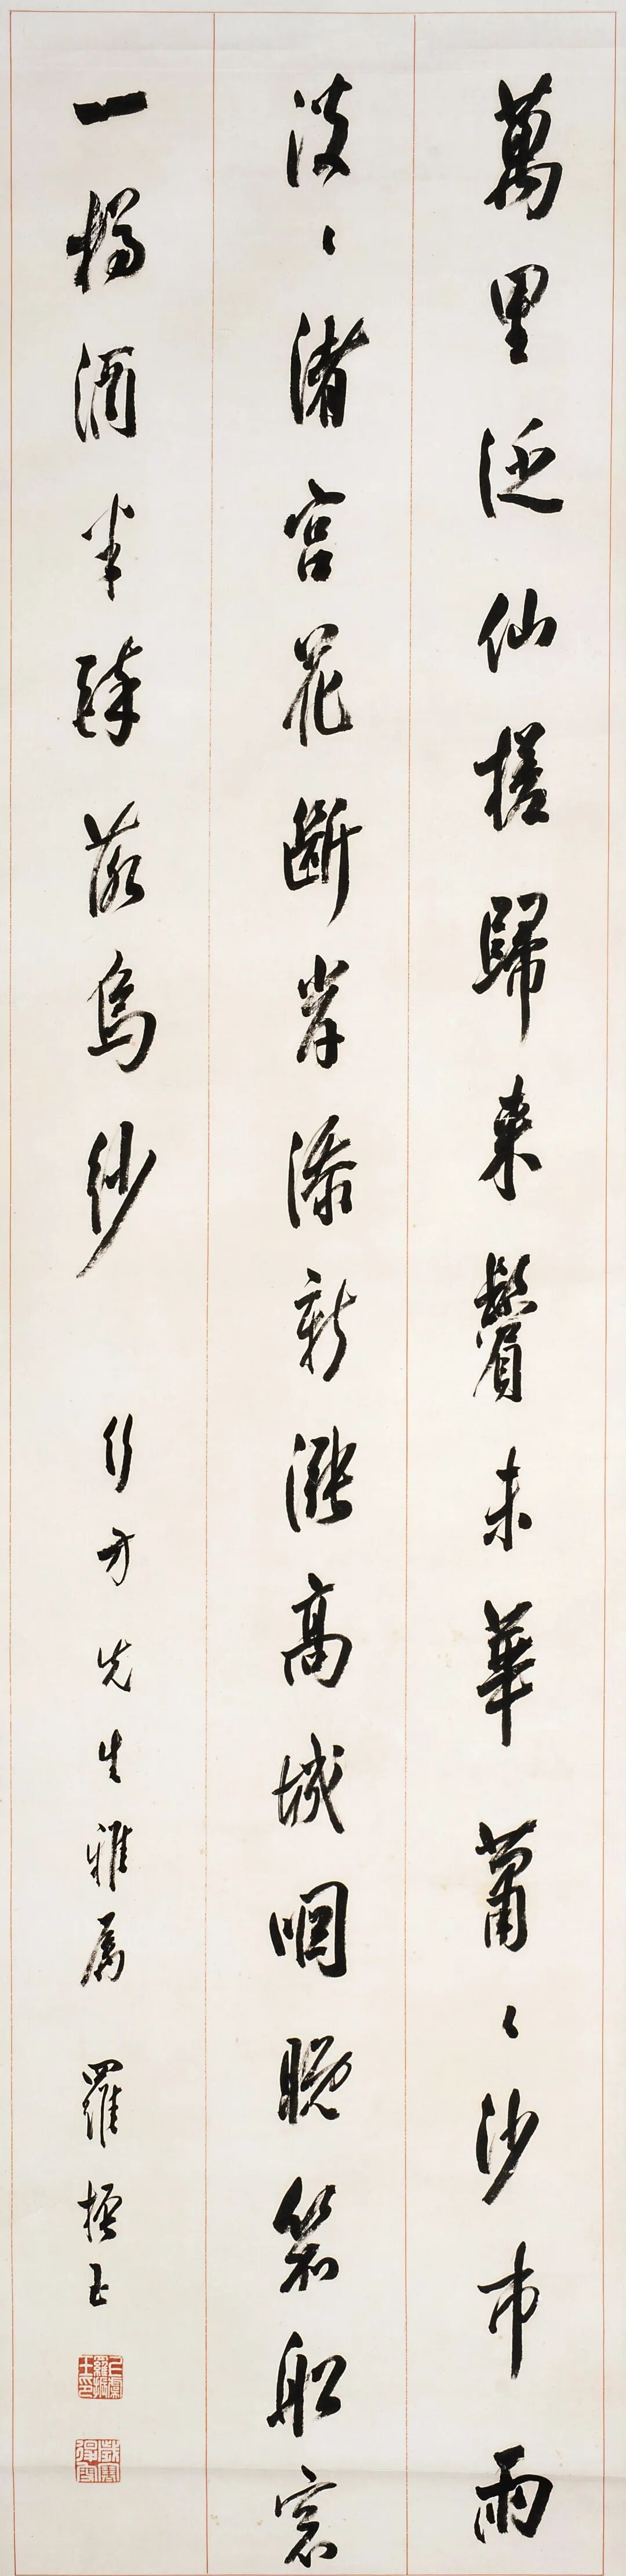 萬里泛仙槎歸來鬢未華蕭〻沙市雨
淡〻渚宮花斷岸添新漲高城咽晚笳船窗
一樽酒半醉落烏紗 行方先生雅屬 羅振玉